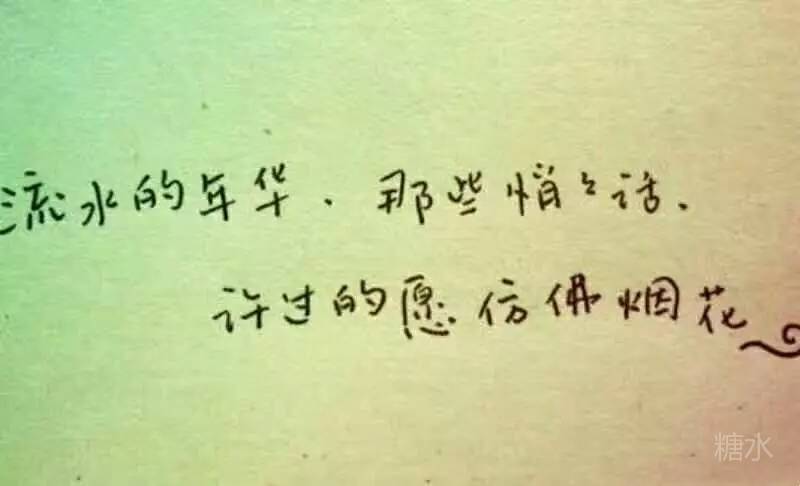 流水的年华.那些悄々话.
许过的愿.仿佛烟花
糖水